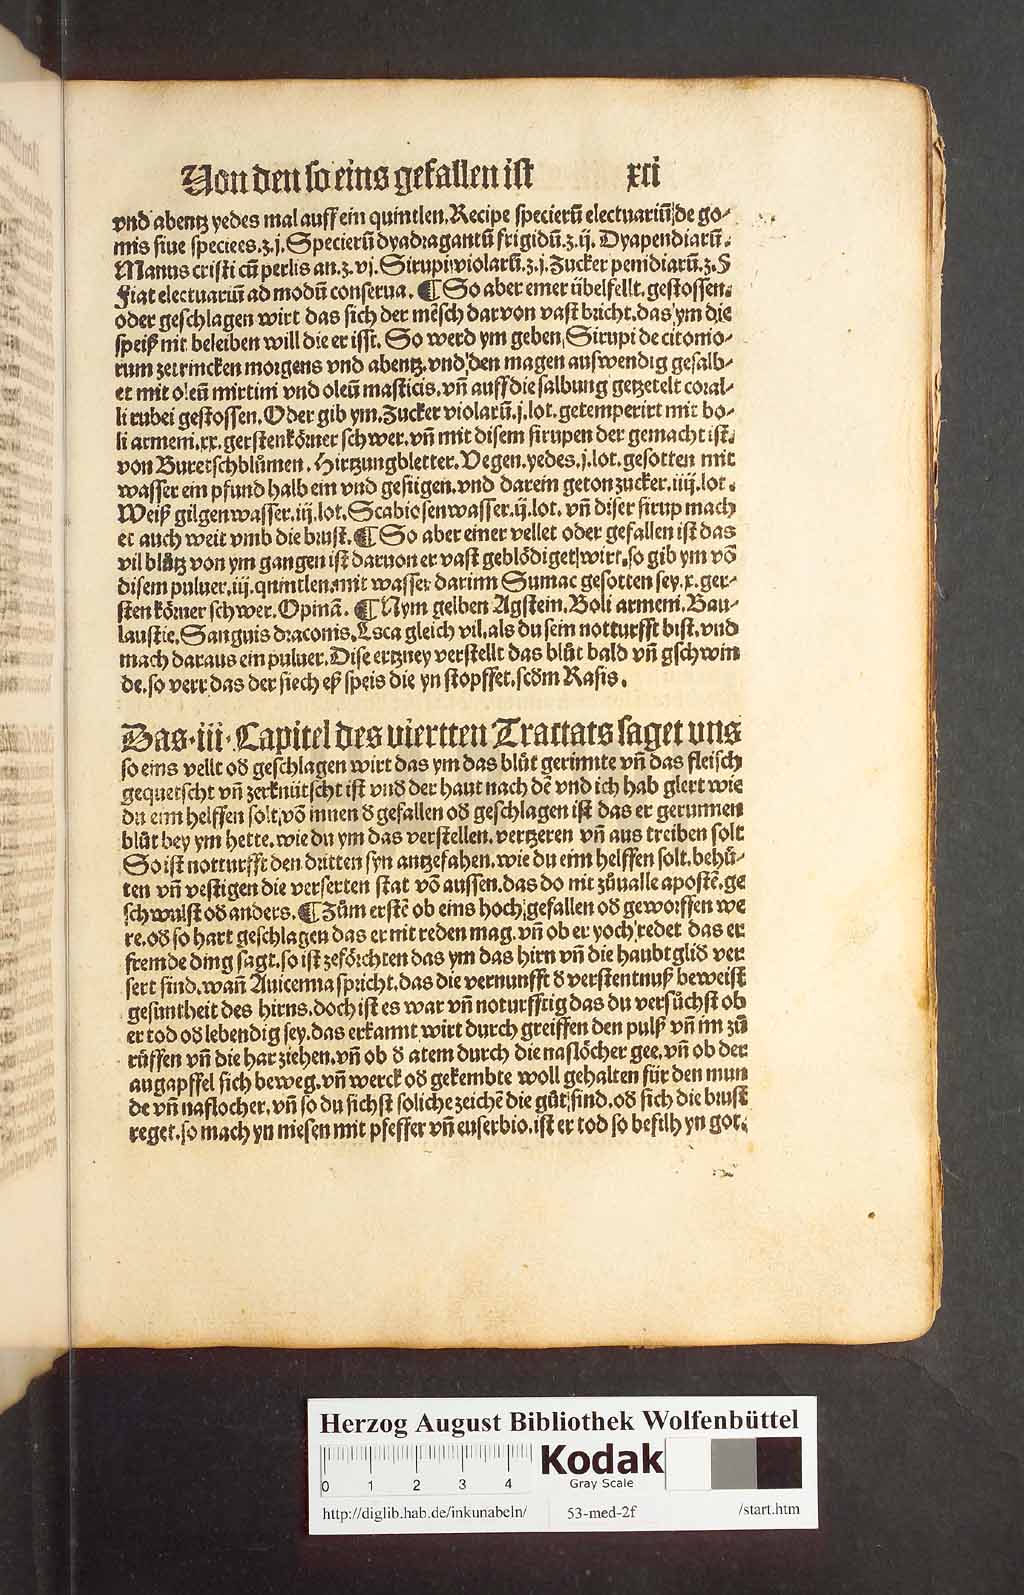 Von den so eins gefallen ist xci
vnd abentz yedes mal auff ein quintlen. Recipe specierū electuariū de go-
mis siue speciees.ʒ.j. Specierū dyadragantū frigidū.ʒ.ij. Dyapendiarū.
Manus cristi cū perlis an.ʒ.vj. Sirupi violarū.ʒ.j. Zucker penidiarū.ʒ.
Fiat electuariū ad modū conserua. ¶ So aber emer übelfellt. gestossen.
oder geschlagen wirt das sich der mēsch daruon vast bricht. das ym die
speiß nit beleiben will die er isst. So werd ym geben Sirupi de citonio-
rum zetrincken morgens vnd abentz. vnd den magen auswendig gesalb-
et mit oleū mirtini vnd oleū masticis. vñ auff die salbung getzetelt coral-
li rubei gestossen. Oder gib ym. Zucker violarū.j. lot. getemperirt mit bo-
li armeni.xx. gerstenkörner schwer. vñ mit disem sirupen der gemacht ist.
von Buretschblůmen. Hirtzungbletter. Vegen. yedes.j. lot. gesotten mit
wasser ein pfund halb ein vnd gesiigen. vnd darein geton zucker.iiij. lot.
Weiß gilgenwasser.iij. lot. Scabiosenwasser.ij. lot. vñ diser sirup mach
et auch weit vmb die brust. ¶ So aber einer vellet oder gefallen ist das
vil blůtz von ym gangen ist daruon er vast geblödiget wirt. so gib ym vō
disem puluer.iij. quintlen. mit wasser darinn Sumac gesotten sey.x. ger-
sten körner schwer. Opinā. ¶ Nym gelben Agstein. Boli armeni. Bau-
laustie. Sanguis draconis. Esca gleich vil. als du sein notturfft bist. vnd
mach daraus ein puluer. Dise ertzney verstellt das blůt bald vñ gschwin
de. so verr das der siech eß speis die yn stopffet. scōm Rasis.
Das.iii. Capitel des viertten Tractats saget uns
so eins vellt oð geschlagen wirt das ym das blůt gerinnte vñ das fleisch
gequetscht vñ zerknütscht ist vnd der haut nach dē vnd ich hab glert wie
du eim helffen solt. vō innen ð gefallen oð geschlagen ist das er gerunnen
blůt bey ym hette. wie du ym das verstellen. vertzeren vñ aus treiben solt
So ist notturfft den dritten syn antzefahen. wie du eim helffen solt. behů-
ten vñ vestigen die verserten stat vō aussen. das do nit zůualle apostē. ge
schwulst oð anders. ¶ Zům erstē ob eins hoch gefallen oð geworffen we
re. oð so hart geschlagen das er nit reden mag. vñ ob er yoch redet das er
fremde ding sagt. so ist zeförchten das ym das hirn vñ die haubtglið ver
sert sind. wañ Auicenna spricht. das die vernunfft ð verstentnuß beweist
gesuntheit des hirns. doch ist es war vñ noturfftig das du versůchst ob
er tod oð lebendig sey. das erkannt wirt durch greiffen den pulß vñ im zů
růffen vñ die har ziehen. vñ ob ð atem durch die naslöcher gee. vñ ob der
augapffel sich beweg. vñ werck oð gekembte woll gehalten für den mun
de vñ naslocher. vñ so du sichst soliche zeichē die gůt sind. oð sich die brust
reget. so mach yn niesen mit pfeffer vñ euforbio. ist er tod so befilh yn got.
Herzog August Bibliothek Wolfenbüttel
0 1 2 3 4
Kodak
Gray Scale
http://diglib.hab.de/inkunabeln/ 53-med-2f /start.htm